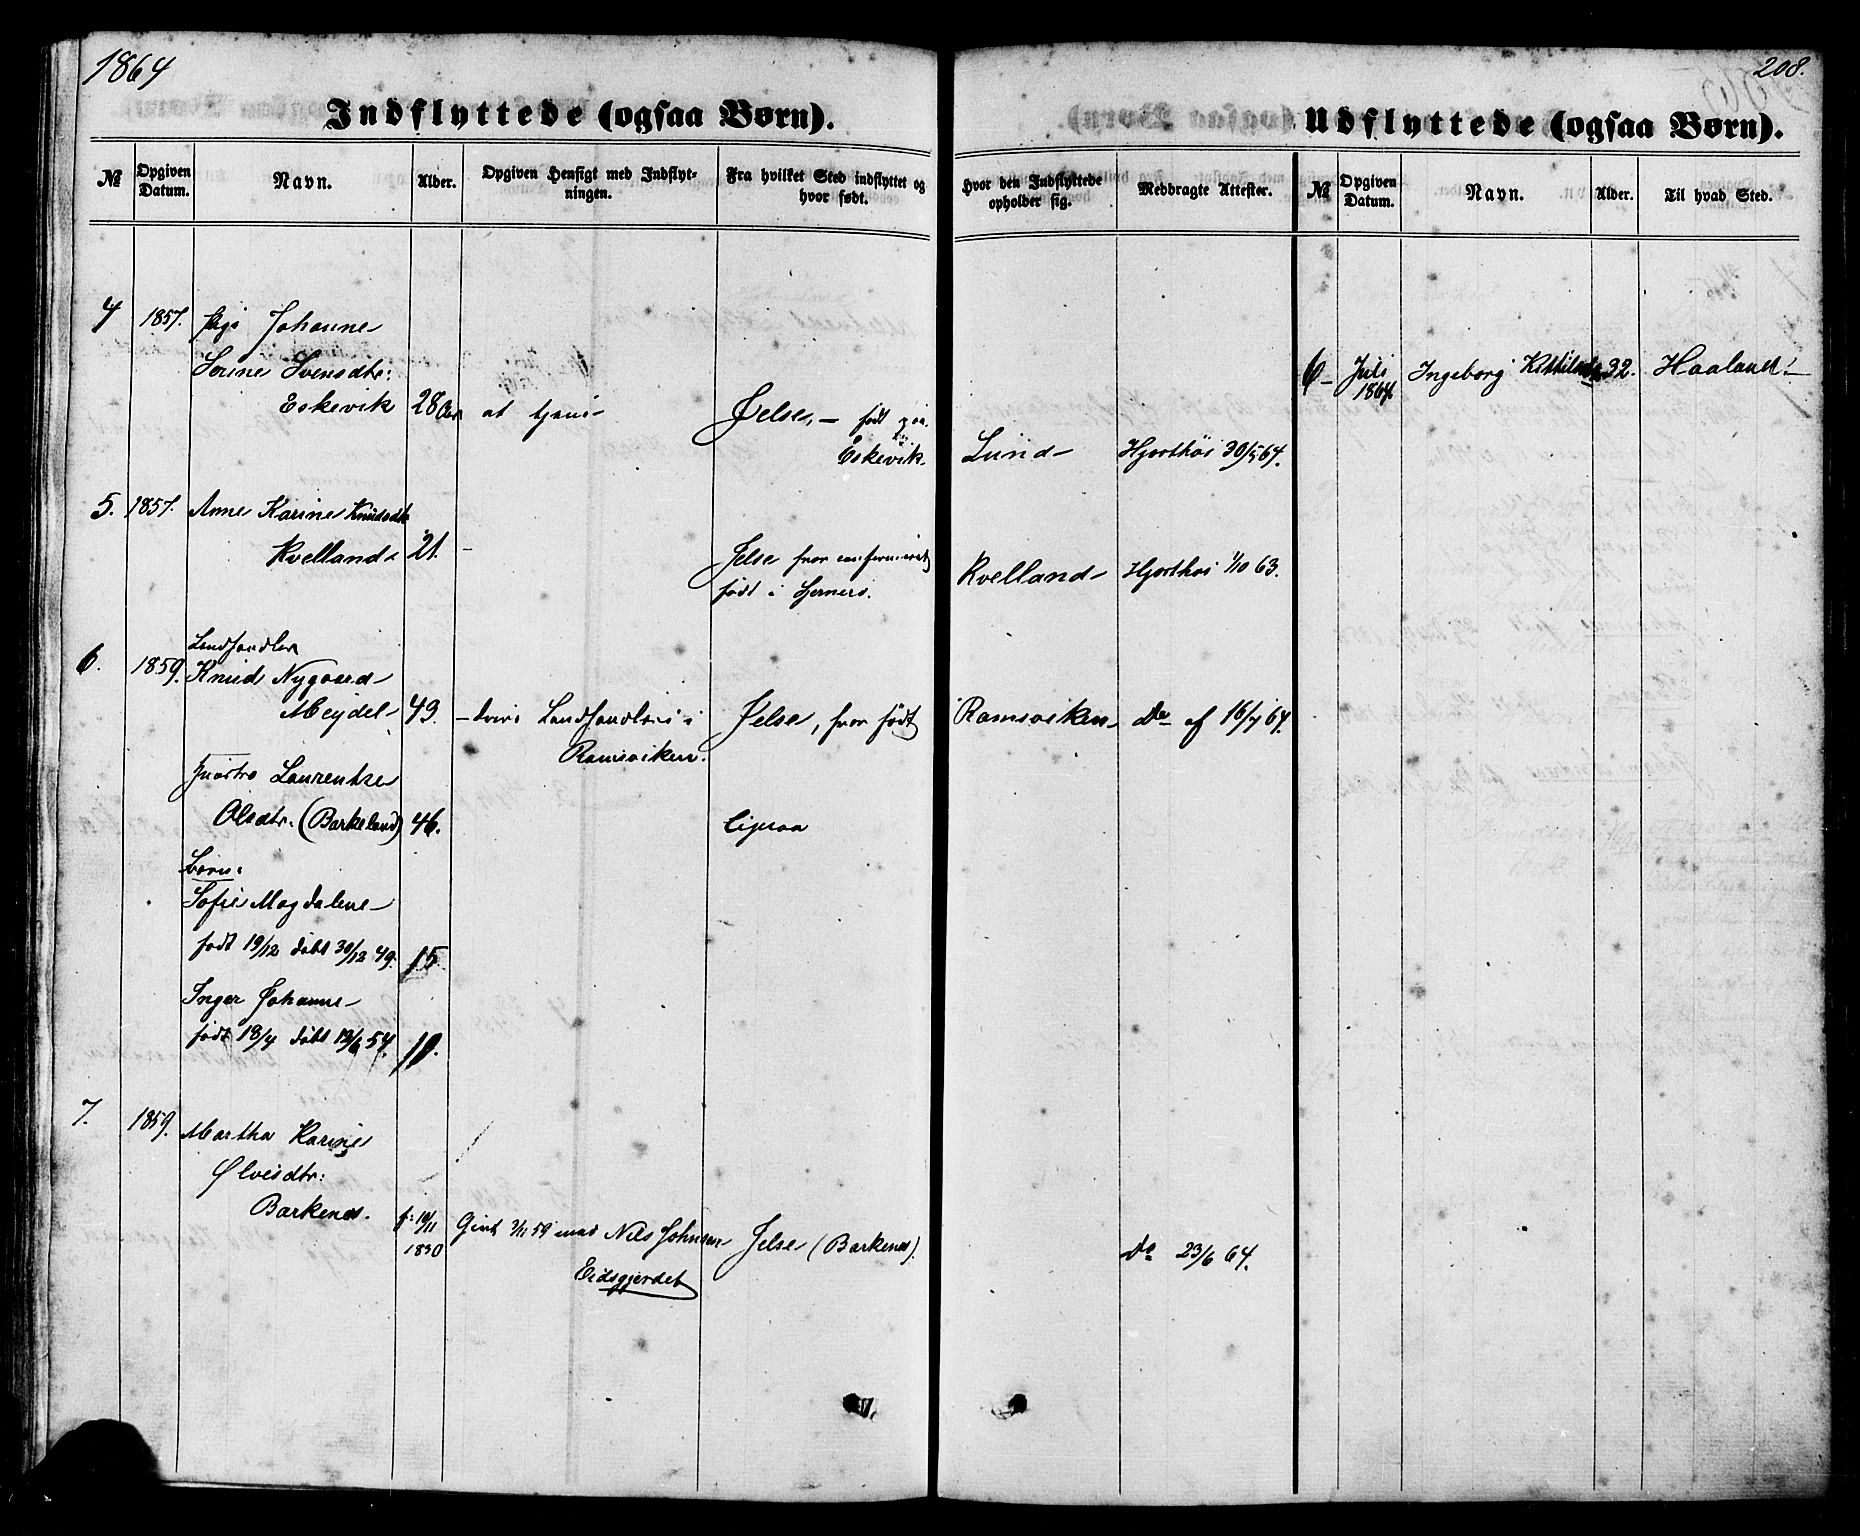 1864
208.
Indflyttede (ogsaa Børn).
Udflyttede (ogsaa Børn).
№
Opgiven Datum.
Navn.
Alder.
Opgiven Hensigt med Indflytningen.
Fra hvilket Sted indflyttet og hvor født.
Hvor den Indflyttede opholder sig.
Medbragte Attester.
№
Opgiven Datum.
Navn.
Alder.
Til hvad Sted.
4 1857. Johanne
Serine Svensdtr:
Eskevik 28 Aar at tjene
Jelse, – født paa
Eskevik.
Lund Hjorthøi 30/5 64.
5. 1857. Anne Karine Knudsdtr
Kvelland 21. –
Jelse hvor confirmeret
født i
Kvelland Hjorthøi 1/10 63.
6. 1859. Landhandler
Knud Nygaard
Meydel 43. – drive Landhandleri i
Ramsviken.
Jelse, hvor født
Ramsviken Do af 16/7 64.
Hustro Laurentze
Olsdtr. (Barkeland) 46. ligesaa
Børn:
Sofie Magdalene
født 19/12 døbt 30/12 49. 15
Inger Johanne
født 18/4 døbt 54. 10.
7. 1859. Martha Karine
Ølvesdtr:
Barkenes. f: 10/11
1830
Givt 59 med Nils Johnsen
Eidsgjerdet
Jelse (Barkenes).
Do 23/6 64.
6 – Juli
1864. Ingeborg 32. Haaland. –